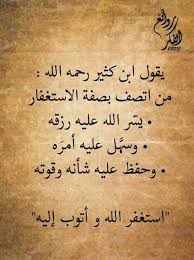 روائع
الفكر
enzy
يقول ابن كثير رحمه الله :
من اتصف بصفة الاستغفار
• يسّر الله عليه رزقه
• وسهّل عليه أمرَه
• وحفظ عليه شأنه وقوته
"استغفر الله و أتوب إليه"